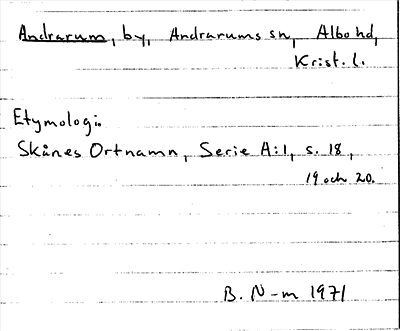 Andrarum, by, Andrarums sn, Albo hd,
Krist. l.
Etymologi:
Skånes Ortnamn, Serie A:1, s. 18,
19 och 20.
B. N-m 1971